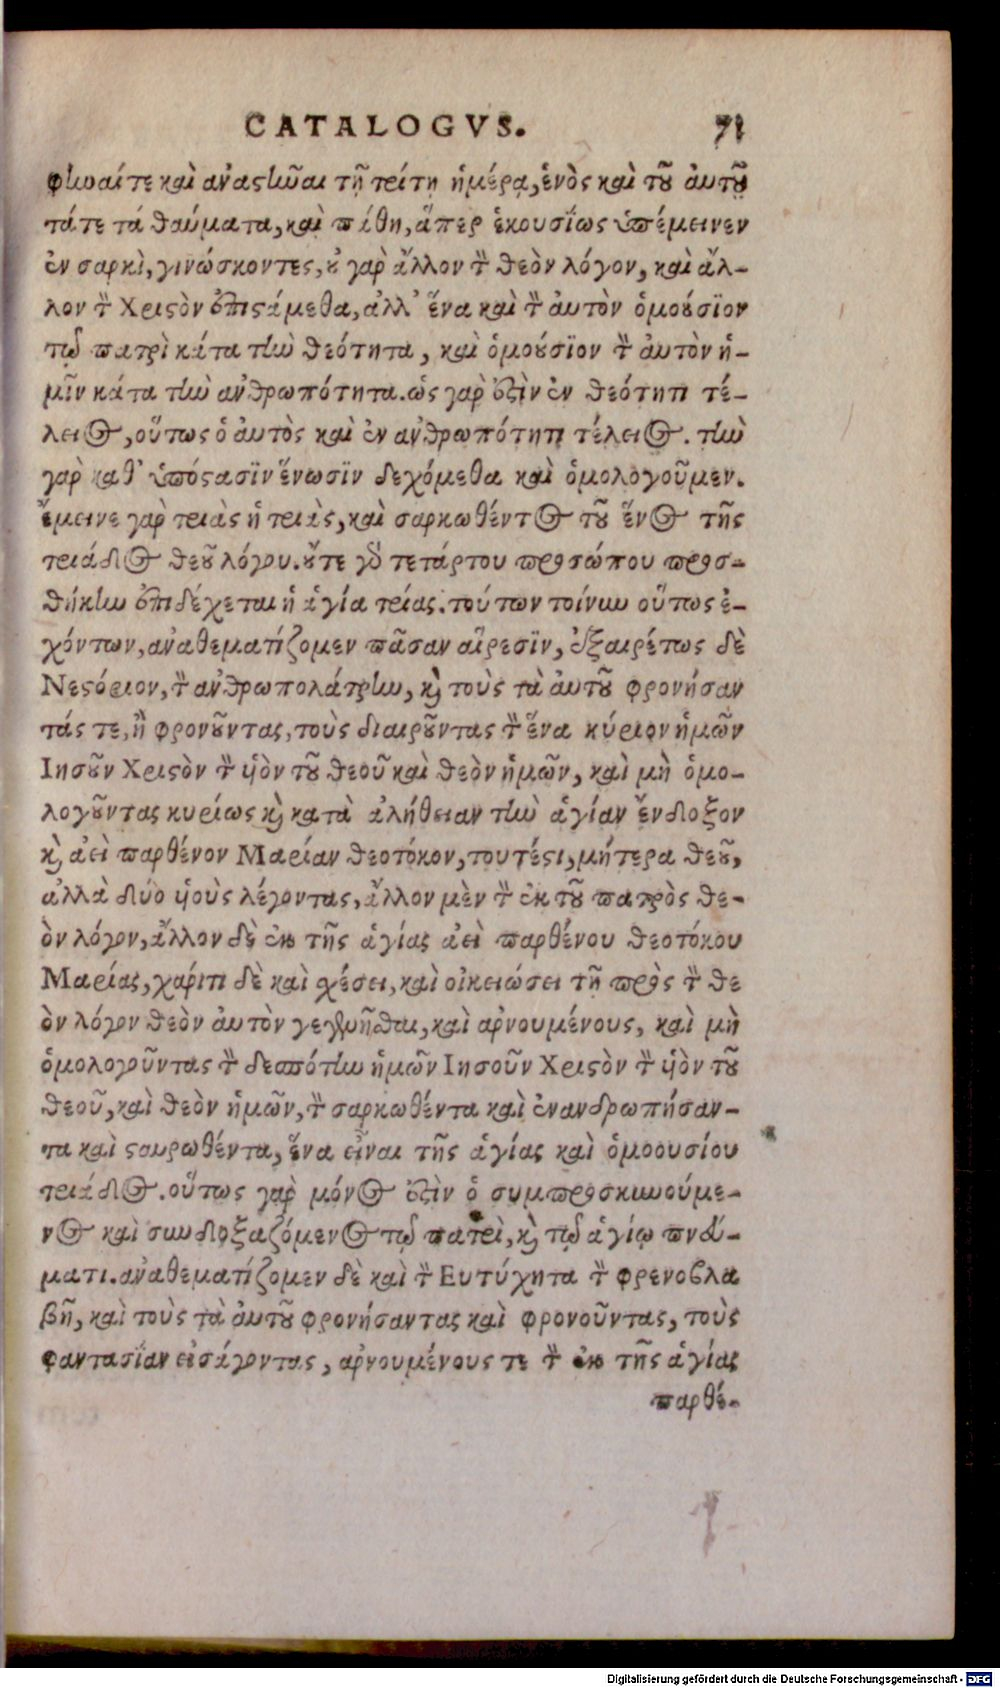 CATALOGVS. 71
φῆναί τε καὶ ἀναςῆναι τῇ τρίτη ἡμέρᾳ, ἑνὸς καὶ τοῦ ἀυτοῦ
τάτε τά θαύματα, καὶ πάθη, ἅπερ ἑκουσίως ὑπέμεινεν
ἐν σαρκὶ, γινώσκοντες, οὐ γαρ ἄλλον τὸν θεὸν λόγον, καὶ ἄλ-
λον τὸν Χριςὸν ἐπιςάμεθα, ἀλλ' ἕνα καὶ τὸν ἀυτὸν ὁμούσϊον
τῷ πατρὶ κάτα τὴν θεότητα, καὶ ὁμούσϊον τὸν ἀυτὸν ἡ-
μῖν κάτα τὴν ἀνθρωπότητα. ὡς γαρ ἐςὶν ἐν θεότητι τέ-
λειος, οὕτως ὁ ἀυτὸς καὶ ἐν ἀνθρωπότητι τέλειος. τὴν
γαρ καθ' ὑπόςασϊν ἕνωσϊν δεχόμεθα καὶ ὁμολογοῦμεν.
ἔμεινε γαρ τριὰς ἡ τριὰς, καὶ σαρκωθέντος τοῦ ἕνος τῆς
τριάδος θεοῦ λόγου. οὔτε γὰρ τετάρτου προσώπου προσ-
θήκην ἐπιδέχεται ἡ ἁγία τρίας. τούτων τοίνυν οὕτως ἐ-
χόντων, ἀναθεματίζομεν πᾶσαν αἵρεσϊν, ἐξαιρέτως δὲ
Νεςόριον, τὸν ἀνθρωπολάτρην, καὶ τοὺς τὰ ἀυτοῦ φρονήσαν
τάς τε, ἢ φρονοῦντας, τοὺς διαιροῦντας τὸν ἕνα κύριον ἡμῶν
Ιησοῦν Χριςὸν τὸν ὑιὸν τοῦ θεοῦ καὶ θεὸν ἡμῶν, καὶ μὴ ὁμο-
λογοῦντας κυρίως καὶ κατὰ ἀλήθειαν τὴν ἁγίαν ἔνδοξον
καὶ ἀεὶ παρθένον Μαρίαν θεοτόκον, τουτέςι, μήτερα θεοῦ,
ἀλλὰ δύο ὑιοὺς λέγοντας, ἄλλον μὲν τὸν ἐκ τοῦ πατρὸς θε-
ὸν λόγον, ἄλλον δὲ ἐκ τῆς ἁγίας ἀεὶ παρθένου θεοτόκου
Μαρίας, χάριτι δὲ καὶ σχέσει, καὶ οἰκειώσει τῇ πρὸς τὸν θε
ὸν λόγον θεὸν ἀυτὸν γεγενῆσθαι, καὶ ἀρνουμένους, καὶ μὴ
ὁμολογοῦντας τὸν δεσπότην ἡμῶν Ιησοῦν Χριςὸν τὸν ὑιὸν τοῦ
θεοῦ, καὶ θεὸν ἡμῶν, τὸν σαρκωθέντα καὶ ἐνανδρωπήσαν-
τα καὶ ςαυρωθέντα, ἕνα εἶναι τῆς ἁγίας καὶ ὁμοουσίου
τριάδος. οὕτως γαρ μόνος ἐςὶν ὁ συμπροσκυνούμε-
νος καὶ συνδοξαζόμενος τῷ πατρὶ, καὶ τῷ ἁγίῳ πνεύ-
ματι. ἀναθεματίζομεν δὲ καὶ τὸν Ευτύχητα τὸν φρενοβλα
βῆ, καὶ τοὺς τὰ ἀυτοῦ φρονήσαντας καὶ φρονοῦντας, τοὺς
φαντασΐαν εἰσάγοντας, ἀρνουμένους τε τὸν ἐκ τῆς ἁγίας
παρθέ-
Digitalisierung gefördert durch die Deutsche Forschungsgemeinschaft - DFG